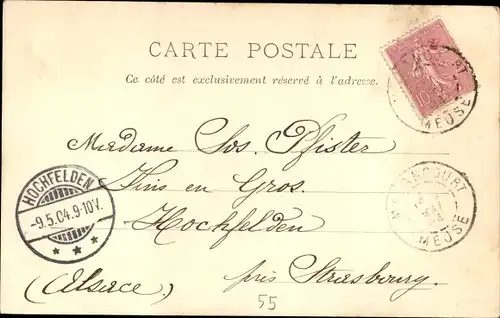 CARTE POSTALE
Ce côté est exclusivement réservé à l'adresse.
10
MEUSE
Madame Jos. Pfister
Vins en Gros.
Hochfelden
(Alsace) près Strasbourg.
HOCHFELDEN
-9.5.04.9-10V.
MEUSE
55